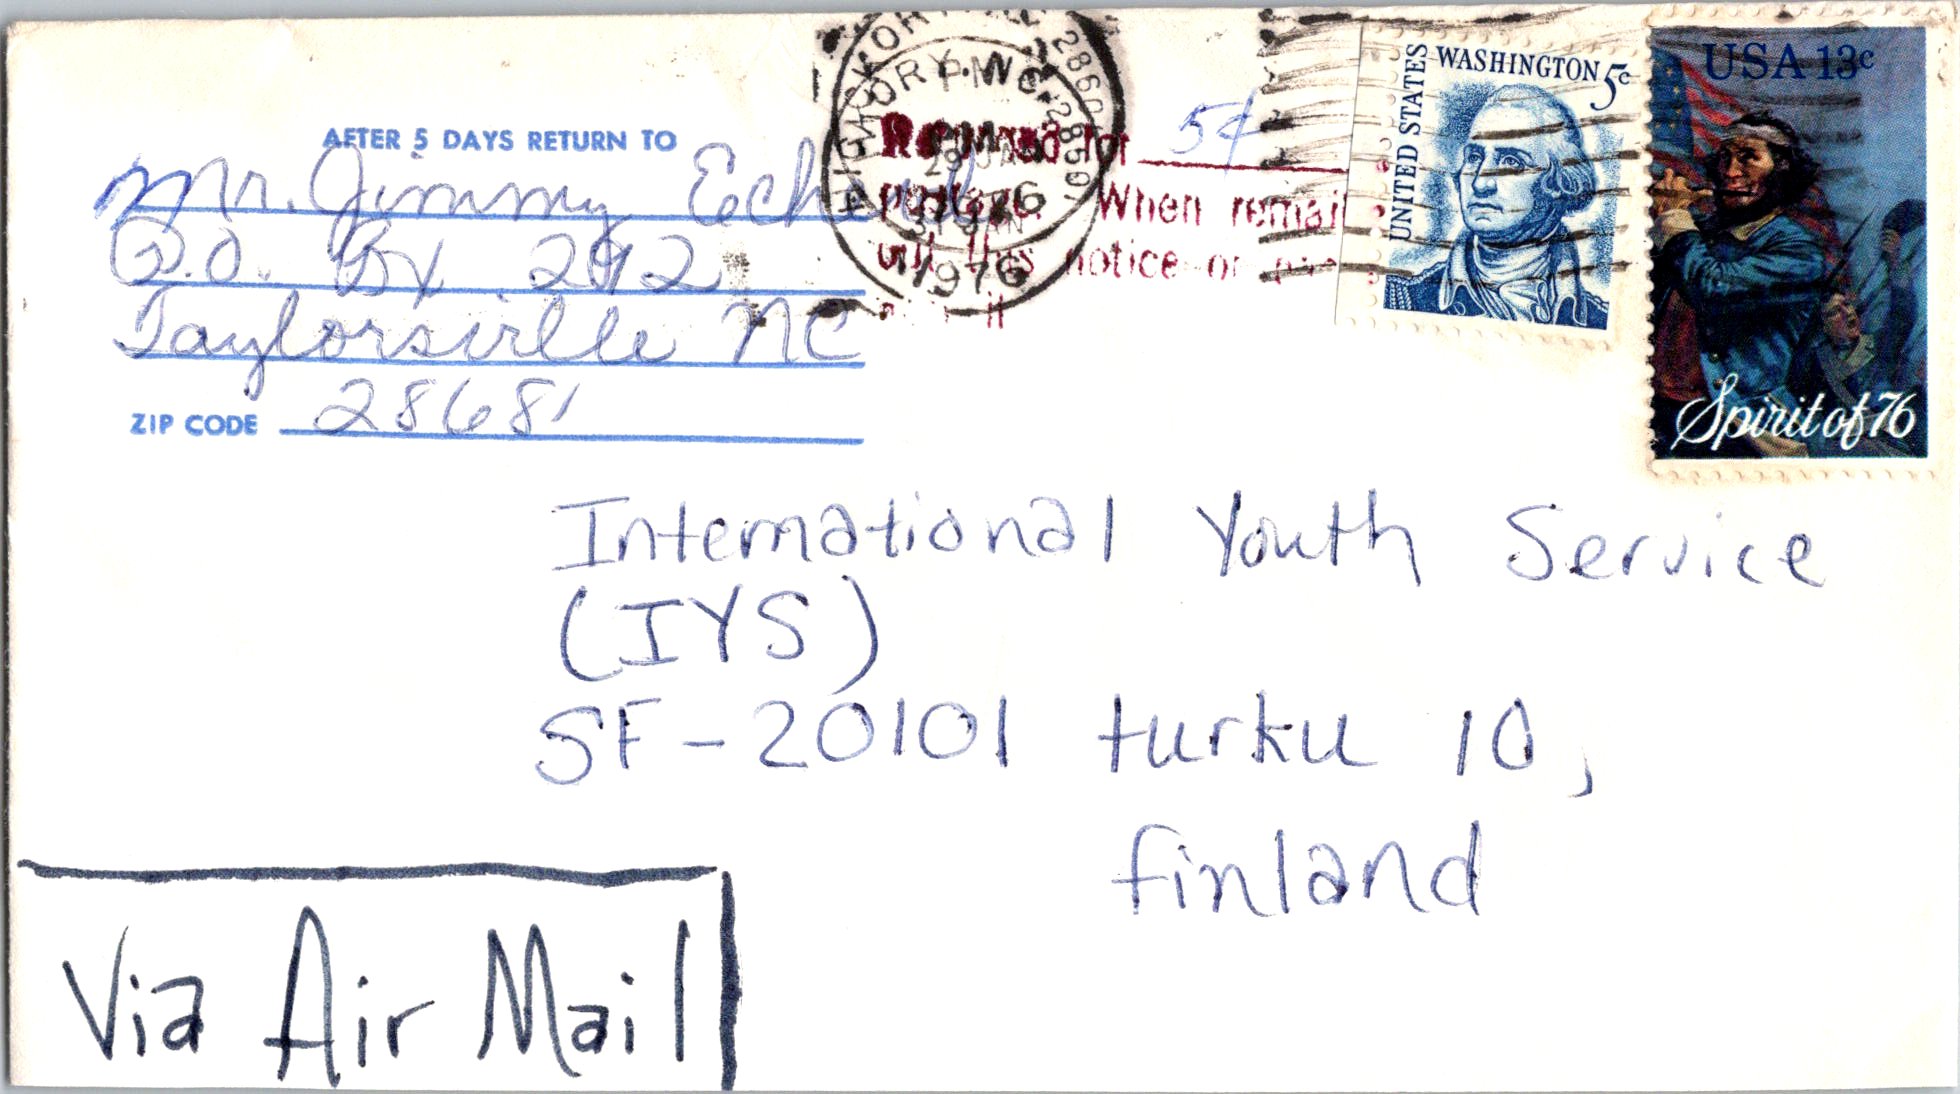 AFTER 5 DAYS RETURN TO
Mr. Jimmy
P.O. Bx 292
Taylorsville NC
ZIP CODE 28681
HICKORY, N.C. 28601
PM
29 JAN
31 JAN
1976
Returned for 5¢
postage. When remail
will this notice or
UNITED STATES
WASHINGTON 5c
USA 13c
Spirit of 76
International Youth Service
(IYS)
SF-20101 turku 10,
finland
Via Air Mail